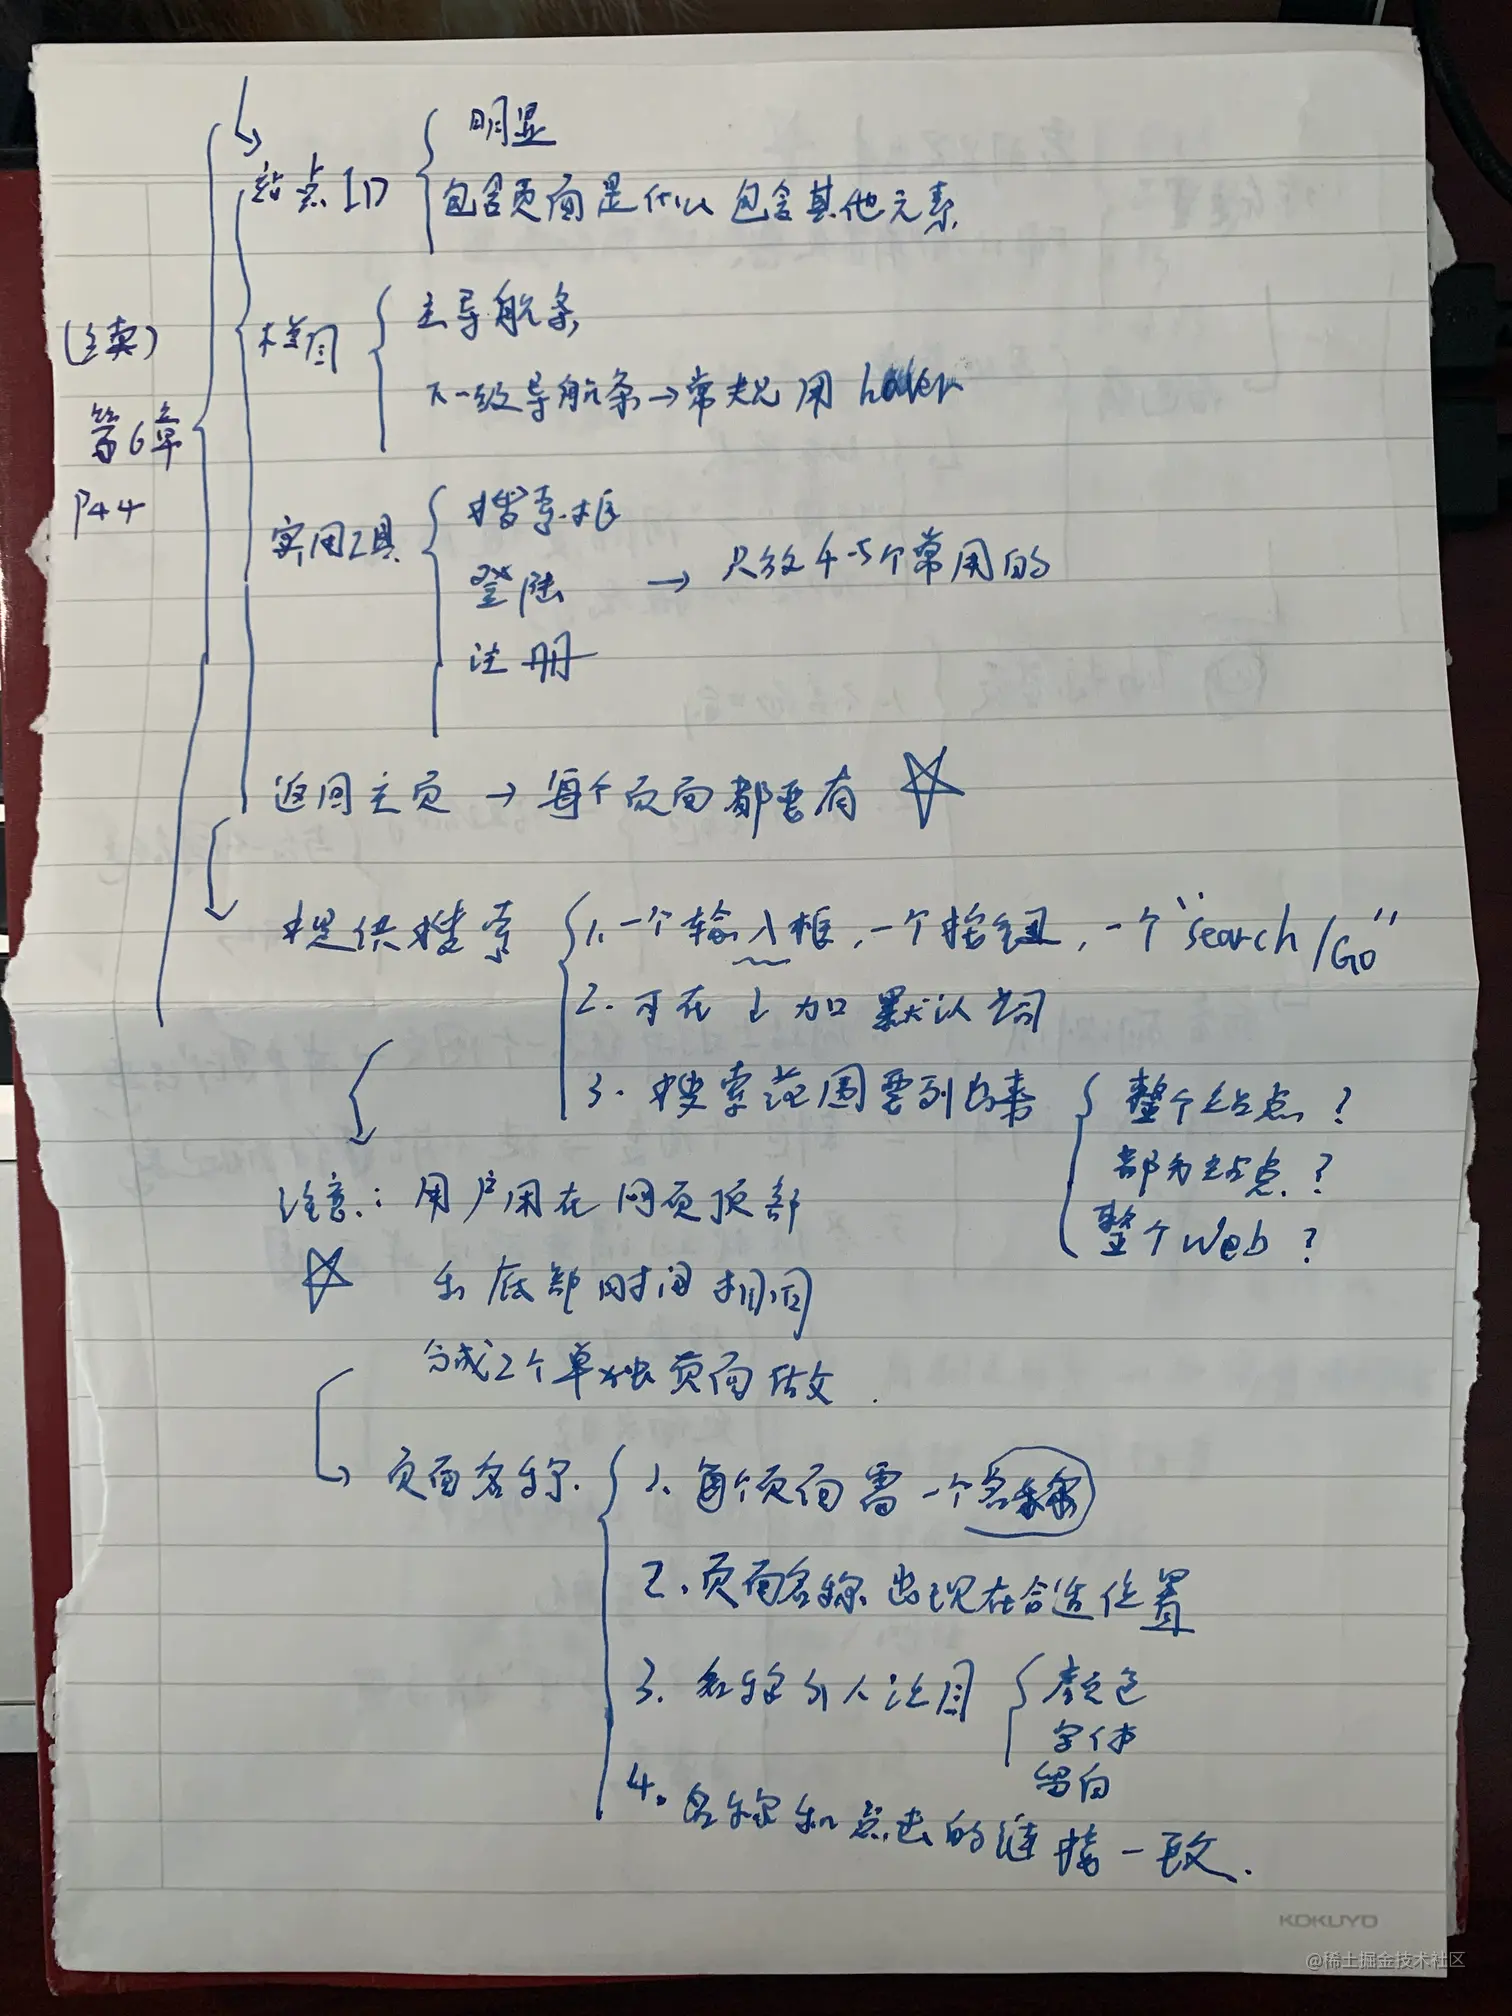 (续)
第6章
P44
站点ID
明显
包含页面是什么 包含其他元素
栏目
主导航条
下一级导航条→常规用
实用工具
搜索框
登陆 → 只放4-5个常用的
注册
返回主页 → 每个页面都要有 ☆
提供搜索
1. 一个输入框,一个按钮,一个"search/Go"
2. 可在 加默认词
3. 搜索范围要列出来
整个站点?
部分站点?
整个Web?
注意:用户用在网页顶部
☆ 和底部时间相同
分成2个单独页面做
页面名称
1. 每个页面需一个名称
2. 页面名称出现在合适位置
3. 名称引人注目
颜色
字体
留白
4. 名称和点击的链接一致.
KOKUYO
@稀土掘金技术社区